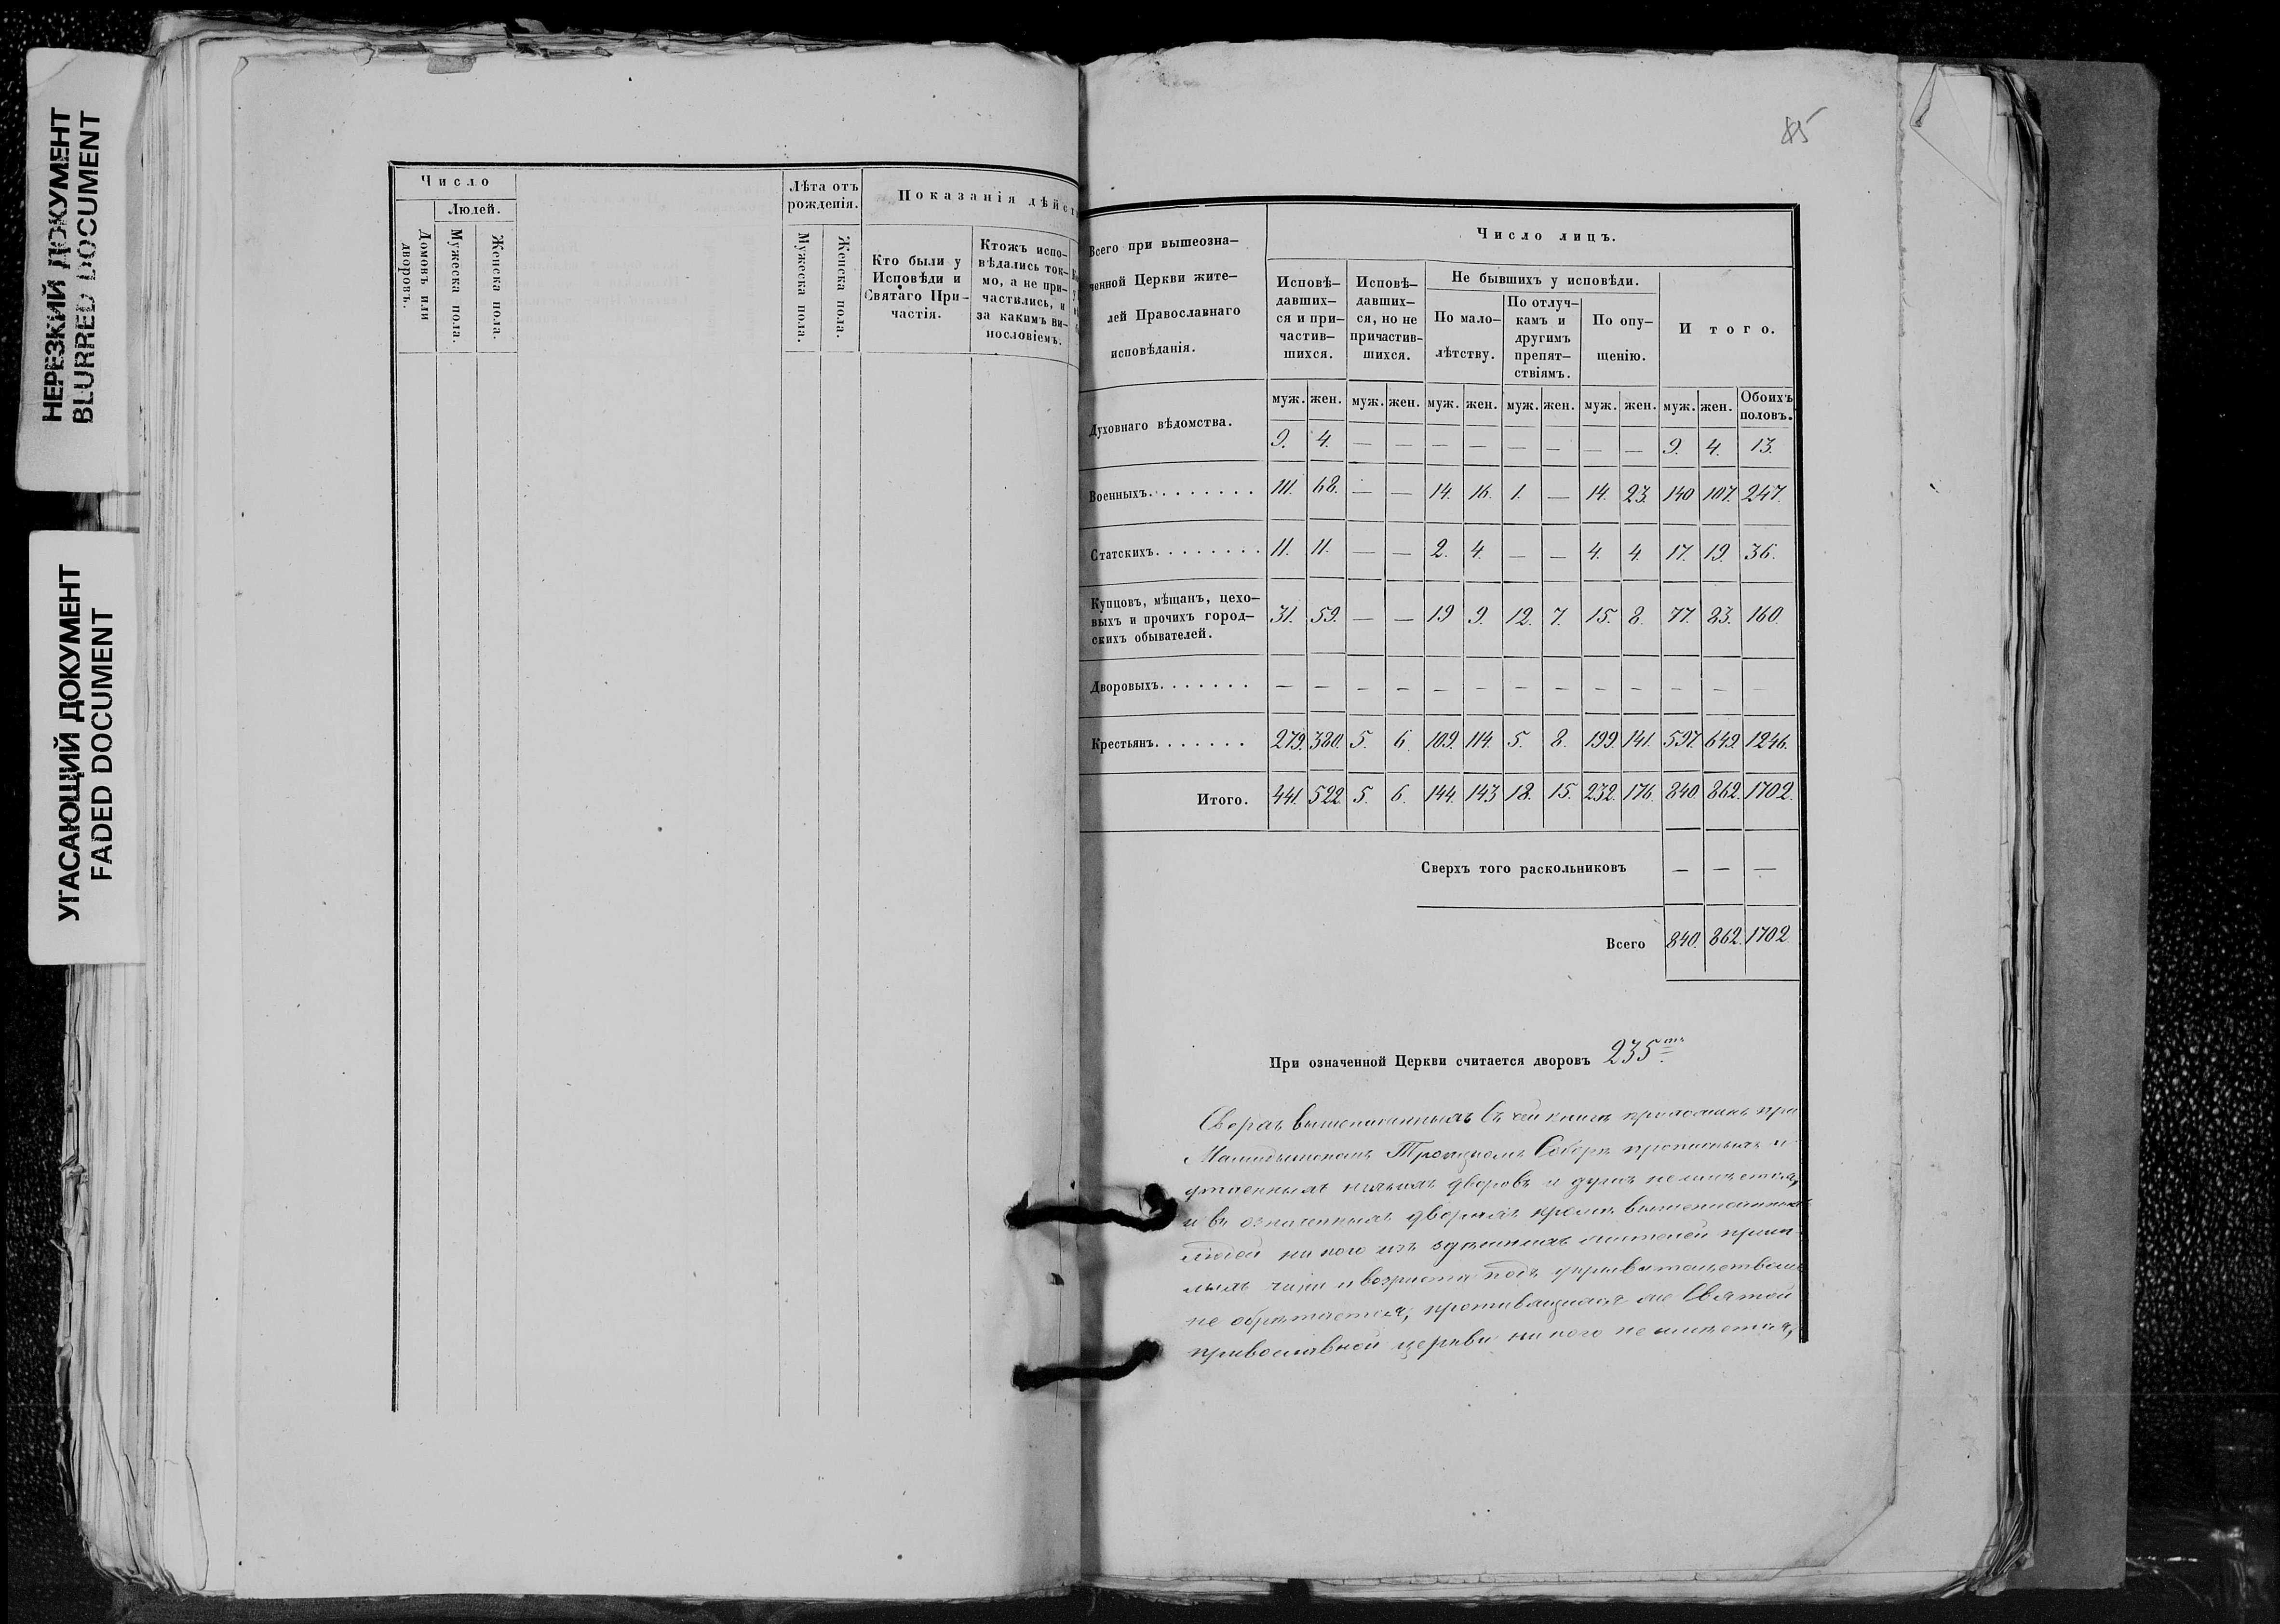 НЕРЕЗКИЙ ДОКУМЕНТ
BLURRED DOCUMENT
УГАСАЮЩИЙ ДОКУМЕНТ
FADED DOCUMENT
Число
Людей.
Домовъ или дворовъ.
Мужеска пола.
Женска пола.
Лѣта отъ рожденія.
Мужеска пола.
Женска пола.
Показанія дѣйст
Кто были у
Исповѣди и
Святаго При-
частія.
Ктожъ испо-
вѣдались ток-
мо, а не при-
частились, и
за какимъ ви-
нословіемъ.
85
Всего при вышеозна-
ченной Церкви жите-
лей Православнаго
исповѣданія.
Число лицъ.
Исповѣ-
давших-
ся и при-
частив-
шихся.
Исповѣ-
давших-
ся, но не
причастив-
шихся.
Не бывшихъ у исповѣди.
По мало-
лѣтству.
По отлуч-
камъ и
другимъ
препят-
ствіямъ.
По опу-
щенію.
Итого.
муж. жен. муж. жен. муж. жен. муж. жен. муж. жен. муж. жен. Обоихъ половъ.
Духовнаго вѣдомства. 9. 4. — — — — — — — — 9. 4. 13.
Военныхъ. 111. 68. — — 14. 16. 1. — 14. 23. 140 107. 247.
Статскихъ. 11. 11. — — 2. 4. — — 4. 4 17. 19. 36.
Купцовъ, мѣщанъ, цехо-
выхъ и прочихъ город-
скихъ обывателей. 31. 59. — — 19 9. 12. 7. 15. 8. 77. 83. 160.
Дворовыхъ. — — — — — — — — — — — — —
Крестьянъ. 279. 380. 5. 6. 109. 114. 5. 8. 199. 141. 597. 649. 1246.
Итого. 441. 522. 5. 6. 144. 143 18. 15. 232. 176. 840. 862. 1702.
Сверхъ того раскольниковъ — — —
Всего 840. 862. 1702
При означенной Церкви считается дворовъ 235ть.
Сверхъ вышеписанныхъ въ сей книгѣ при
Троицкомъ Соборѣ прописныхъ и
утаенныхъ дворовъ и душъ не имѣется,
и въ означенныхъ дворахъ кромѣ вышеписанныхъ
людей никого изъ здѣшнихъ жителей
чина и возраста подъ укрывательствомъ
не обрѣтается, противящихся же Святой
православной церкви никого не имѣется,